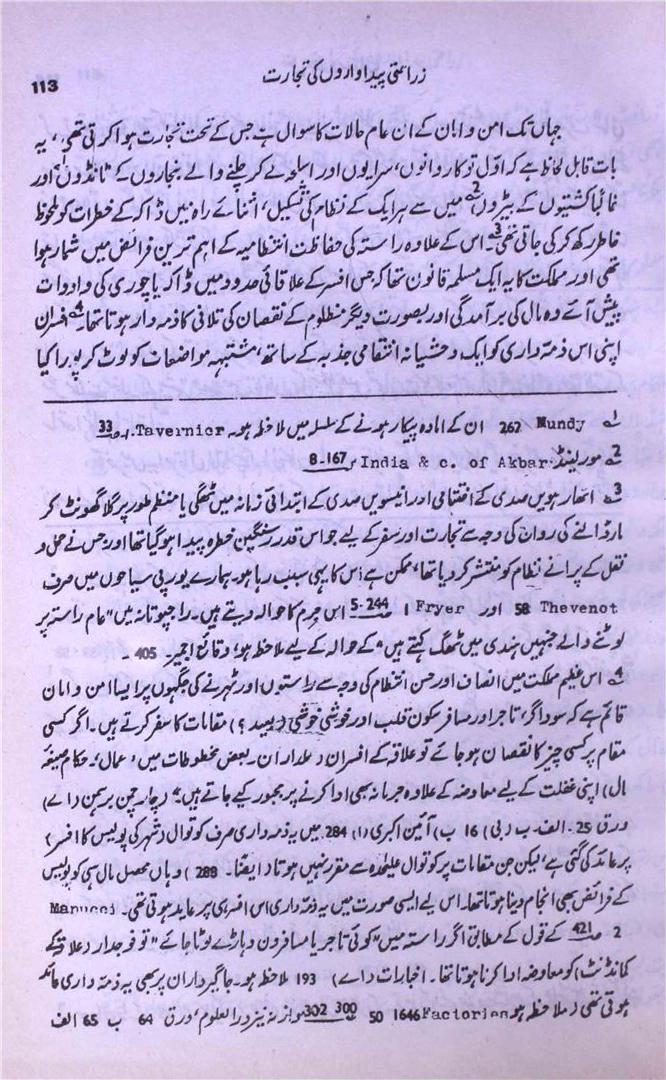 113
زرائتی پیداواروں کی تجارت
جہاں تک امن و امان کے ان عام حالات کا سوال ہے جس کے تحت تجارت ہوا کرتی تھی، یہ
بات قابل لحاظ ہے کہ اوّل تو کاروانوں، سرایوں اور اسلحہ لے کر چلنے والے بنجاروں کے "ٹانڈوں" اور
غالباً کشتیوں کے بیڑوں 2 میں سے ہر ایک کے نظام کی تشکیل، اثنائے راہ میں ڈاکہ کے خطرات کو ملحوظ
خاطر رکھ کر کی جاتی تھی 3۔ اس کے علاوہ راستہ کی حفاظت انتظامیہ کے اہم ترین فرائض میں شمار ہوا
تھی اور مملکت کا یہ ایک مسلمہ قانون تھا کہ جس افسر کے علاقائی حدود میں ڈاکہ یا چوری کی واردات
پیش آئے وہ مال کی برآمدگی اور بصورت دیگر مظلوم کے نقصان کی تلافی کا ذمہ دار ہوتا تھا۔ 4 افسران
اپنی اس ذمّہ داری کو ایک وحشیانہ انتقامی جذبہ کے ساتھ، مشتبہہ مواضعات کو لوٹ کر پورا کیا
1 Mundy 262 ان کے آمادہ پیکار ہونے کے سلسلہ میں ملاحظہ ہو۔ Tavernier، 33
2 مورلینڈ، India & c. of Akbar، 8-167
3 اٹھارہویں صدی کے اختتامی اور انیسویں صدی کے ابتدائی زمانہ میں ٹھگی یا منظم طور پر گلا گھونٹ کر
مار ڈالنے کی رواج کی وجہ سے تجارت اور سفر کے لیے جو اس قدر سنگین خطرہ پیدا ہو گیا تھا اور جس نے حمل و
نقل کے پرانے نظام کو منتشر کر دیا تھا، ممکن ہے اس کا یہی سبب رہا ہو۔ ہمارے یورپی سیاحوں میں صرف
Thevenot 58 اور Fryer ا 244-5 اس جرم کا حوالہ دیتے ہیں۔ راجپوتانہ میں "عام راستہ پر
لوٹنے والے جنہیں ہندی میں ٹھگ کہتے ہیں" کے حوالہ کے لیے ملاحظہ ہو، وقائع اجمیر 405۔
4 اس عظیم مملکت میں انصاف اور حسن انتظام کی وجہ سے راستوں اور ٹہرنے کی جگہوں پر ایسا امن و امان
قائم ہے کہ سوداگر، تاجر اور مسافر سکون قلب اور خوشی خوشی (بعید؟) مقامات کا سفر کرتے ہیں۔ اگر کسی
مقام پر کسی چیز کا نقصان ہو جائے تو علاقہ کے افسران (عملداران۔ بعض مخطوطات میں، عمال، حکام صیغہ
مال) اپنی غفلت کے لیے معاوضہ کے علاوہ جرمانہ بھی ادا کرنے پر مجبور کیے جاتے ہیں۔" (چہار چمن برہمن (اے)
ورق 25۔ الف۔ ب (بی) 16 ب) آئین اکبری (ا) 284 میں یہ ذمہ داری صرف کوتوال (شہر کی پولیس کا افسر)
پر عائد کی گئی ہے، لیکن جن مقامات پر کوتوال علیٰحدہ سے مقرر نہیں ہوتا (ایضاً۔ 288) وہاں محصل مال ہی کو پولیس
کے فرائض بھی انجام دینا ہوتا تھا۔ اس لیے ایسی صورت میں یہ ذمہ داری اس افسر ہی پر عاید ہوتی تھی۔ Manucci
2 ص 421 کے قول کے مطابق اگر راستہ میں "کوئی تاجر یا مسافر دن دہاڑے لوٹا جائے" تو فوجدار (علاقہ کے
کمانڈنٹ) کو معاوضہ ادا کرنا ہوتا تھا۔ اخبارات (اے) 193 ملاحظہ ہو۔ جاگیرداران پر بھی یہ ذمہ داری عائد
ہوتی تھی (ملاحظہ ہو Factories 1646 50 300 302 موازنہ نیز درالعلوم، ورق 64 ب 65 الف